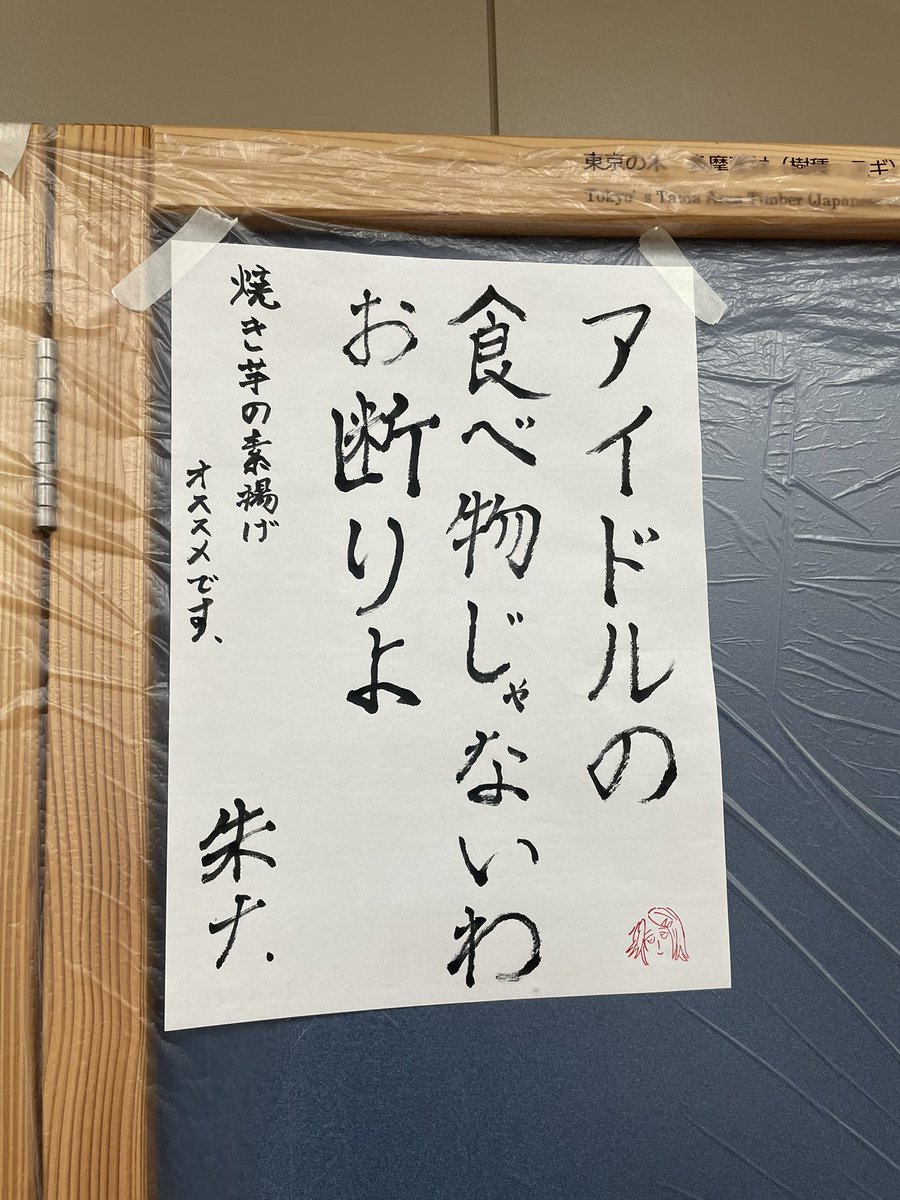 東京の木
Tokyo's Tama Area Timber (Japanese
アイドルの
食べ物じゃないわ
お断りよ
焼き芋の素揚げ
オススメです、
朱ナ.